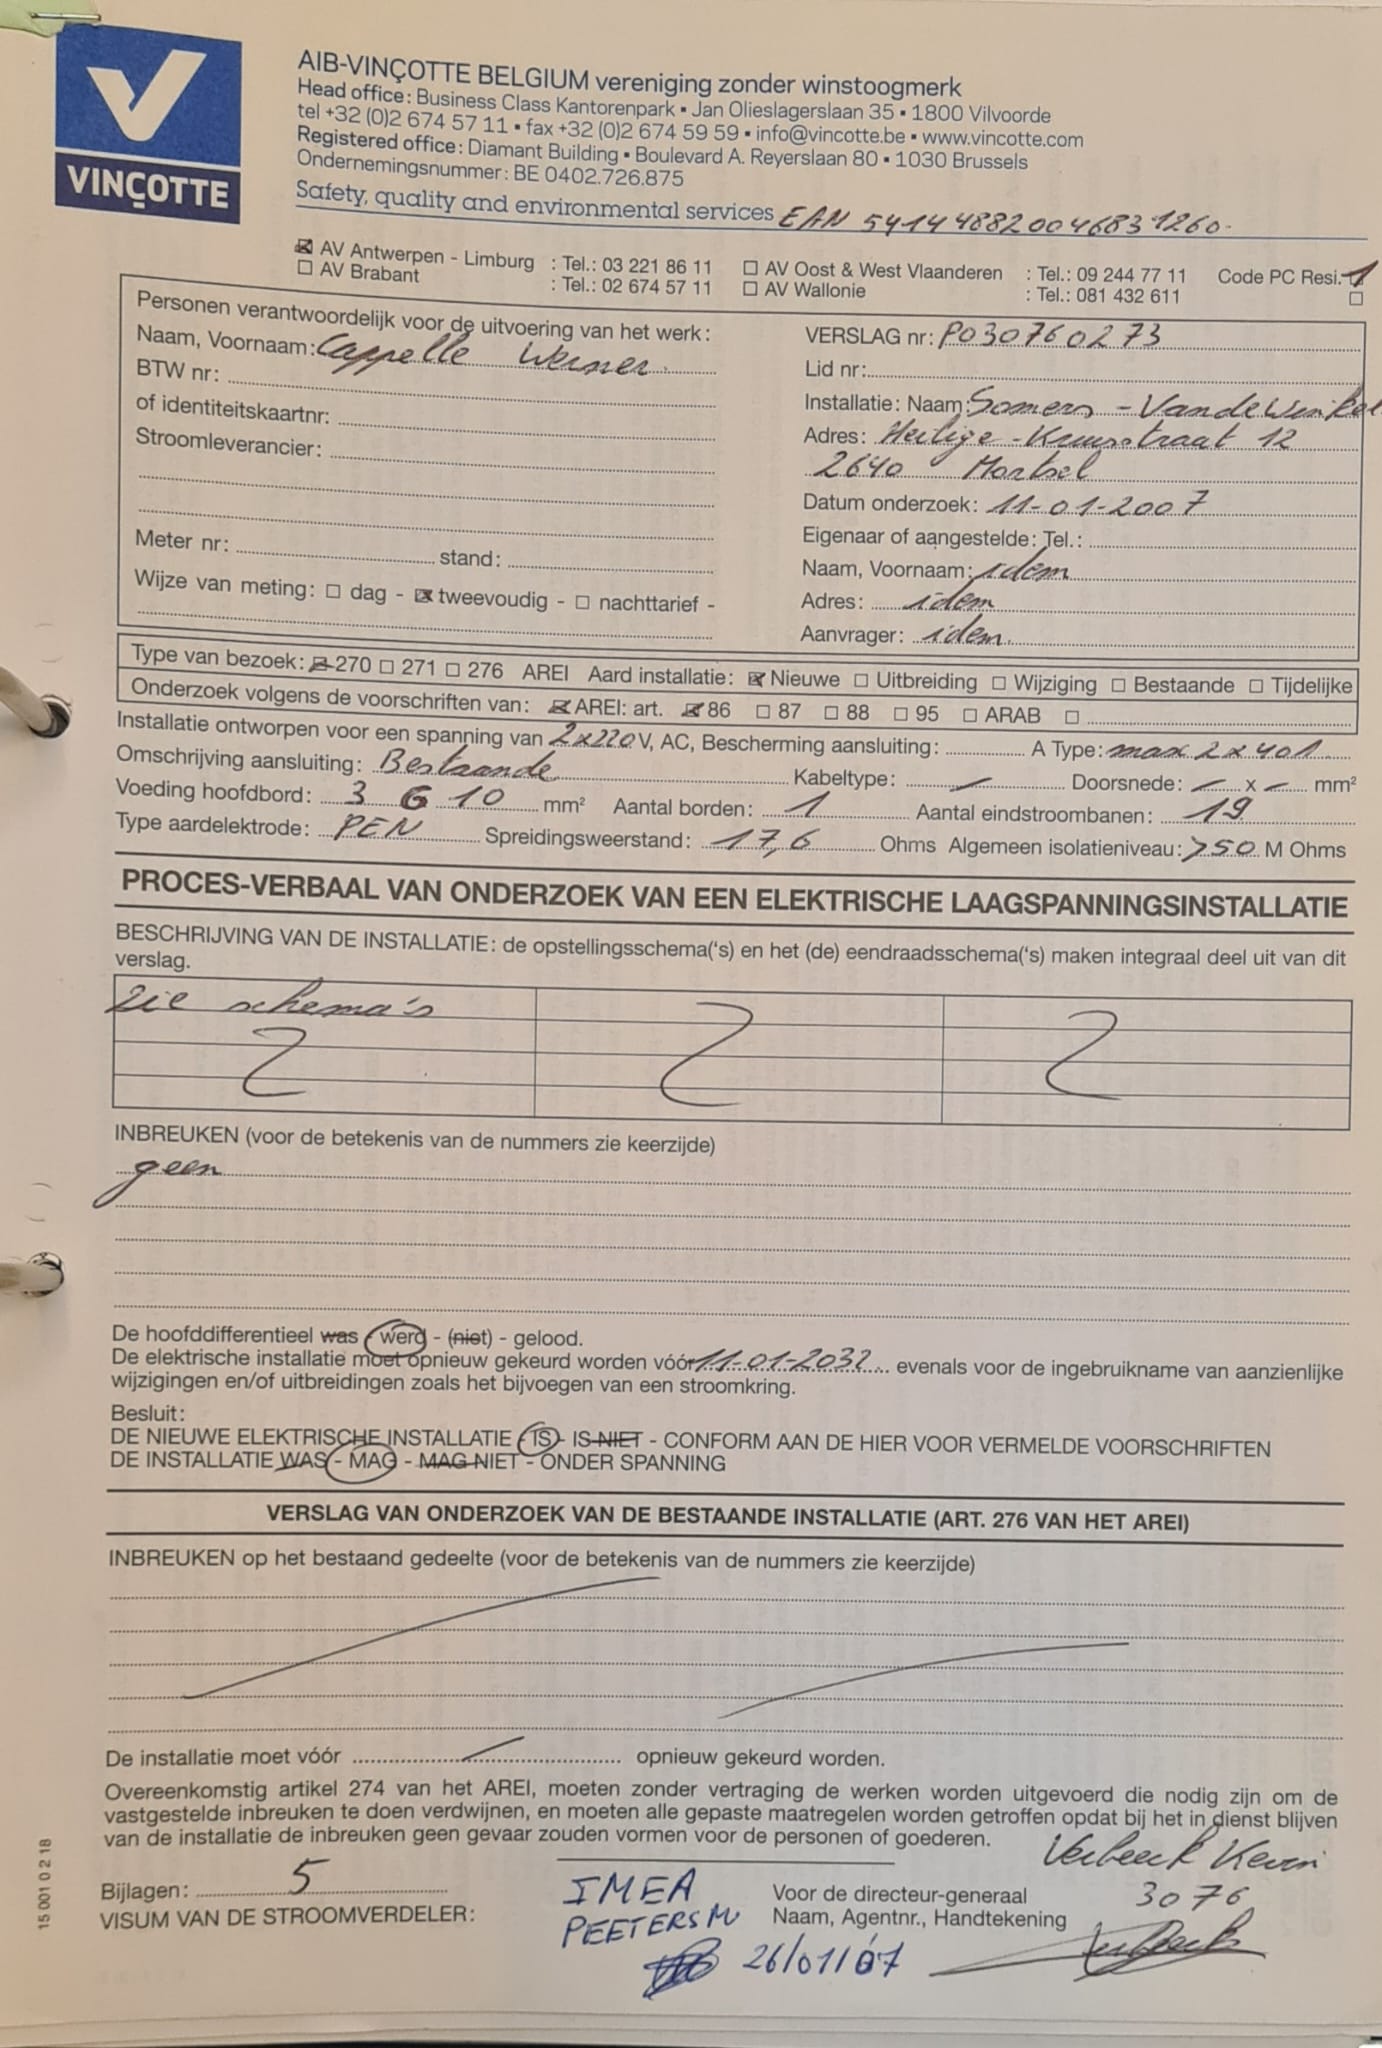 VINÇOTTE
AIB-VINÇOTTE BELGIUM vereniging zonder winstoogmerk
Head office: Business Class Kantorenpark ▪ Jan Olieslagerslaan 35 ▪ 1800 Vilvoorde
tel +32 (0)2 674 57 11 ▪ fax +32 (0)2 674 59 59 ▪ info@vincotte.be ▪ www.vincotte.com
Registered office: Diamant Building ▪ Boulevard A. Reyerslaan 80 ▪ 1030 Brussels
Ondernemingsnummer: BE 0402.726.875
Safety, quality and environmental services EAN 541448820046831260.
☒ AV Antwerpen - Limburg : Tel.: 03 221 86 11 ☐ AV Oost & West Vlaanderen : Tel.: 09 244 77 11 Code PC Resi. 1
☐ AV Brabant : Tel.: 02 674 57 11 ☐ AV Wallonie : Tel.: 081 432 611 ☐
Personen verantwoordelijk voor de uitvoering van het werk:
Naam, Voornaam: Cappelle Werner
BTW nr:
of identiteitskaartnr:
Stroomleverancier:
Meter nr: stand:
Wijze van meting: ☐ dag - ☒ tweevoudig - ☐ nachttarief -
VERSLAG nr: P030760273
Lid nr:
Installatie: Naam: Somers - Vandewinkel
Adres: Heilige-Kruisstraat 12
2640 Mortsel
Datum onderzoek: 11-01-2007
Eigenaar of aangestelde: Tel.:
Naam, Voornaam: idem
Adres: idem
Aanvrager: idem.
Type van bezoek: ☒ 270 ☐ 271 ☐ 276 AREI Aard installatie: ☒ Nieuwe ☐ Uitbreiding ☐ Wijziging ☐ Bestaande ☐ Tijdelijke
Onderzoek volgens de voorschriften van: ☒ AREI: art. ☒ 86 ☐ 87 ☐ 88 ☐ 95 ☐ ARAB ☐
Installatie ontworpen voor een spanning van 2x220 V, AC, Bescherming aansluiting: A Type: max 2x40A
Omschrijving aansluiting: Bestaande Kabeltype: / Doorsnede: / x / mm²
Voeding hoofdbord: 3 G 10 mm² Aantal borden: 1 Aantal eindstroombanen: 19
Type aardelektrode: PEN Spreidingsweerstand: 17,6 Ohms Algemeen isolatieniveau: >50 M Ohms
PROCES-VERBAAL VAN ONDERZOEK VAN EEN ELEKTRISCHE LAAGSPANNINGSINSTALLATIE
BESCHRIJVING VAN DE INSTALLATIE: de opstellingsschema('s) en het (de) eendraadsschema('s) maken integraal deel uit van dit
verslag.
zie schema's
INBREUKEN (voor de betekenis van de nummers zie keerzijde)
geen
De hoofddifferentieel was - werd - (niet) - gelood.
De elektrische installatie moet opnieuw gekeurd worden vóór 11-01-2032 evenals voor de ingebruikname van aanzienlijke
wijzigingen en/of uitbreidingen zoals het bijvoegen van een stroomkring.
Besluit:
DE NIEUWE ELEKTRISCHE INSTALLATIE - IS - IS NIET - CONFORM AAN DE HIER VOOR VERMELDE VOORSCHRIFTEN
DE INSTALLATIE WAS - MAG - MAG NIET - ONDER SPANNING
VERSLAG VAN ONDERZOEK VAN DE BESTAANDE INSTALLATIE (ART. 276 VAN HET AREI)
INBREUKEN op het bestaand gedeelte (voor de betekenis van de nummers zie keerzijde)
De installatie moet vóór / opnieuw gekeurd worden.
Overeenkomstig artikel 274 van het AREI, moeten zonder vertraging de werken worden uitgevoerd die nodig zijn om de
vastgestelde inbreuken te doen verdwijnen, en moeten alle gepaste maatregelen worden getroffen opdat bij het in dienst blijven
van de installatie de inbreuken geen gevaar zouden vormen voor de personen of goederen.
Verbeeck Kevin
Bijlagen: 5
IMEA
Voor de directeur-generaal 3076
VISUM VAN DE STROOMVERDELER:
PEETERS M
Naam, Agentnr., Handtekening
26/01/07
15 001 0 2 18